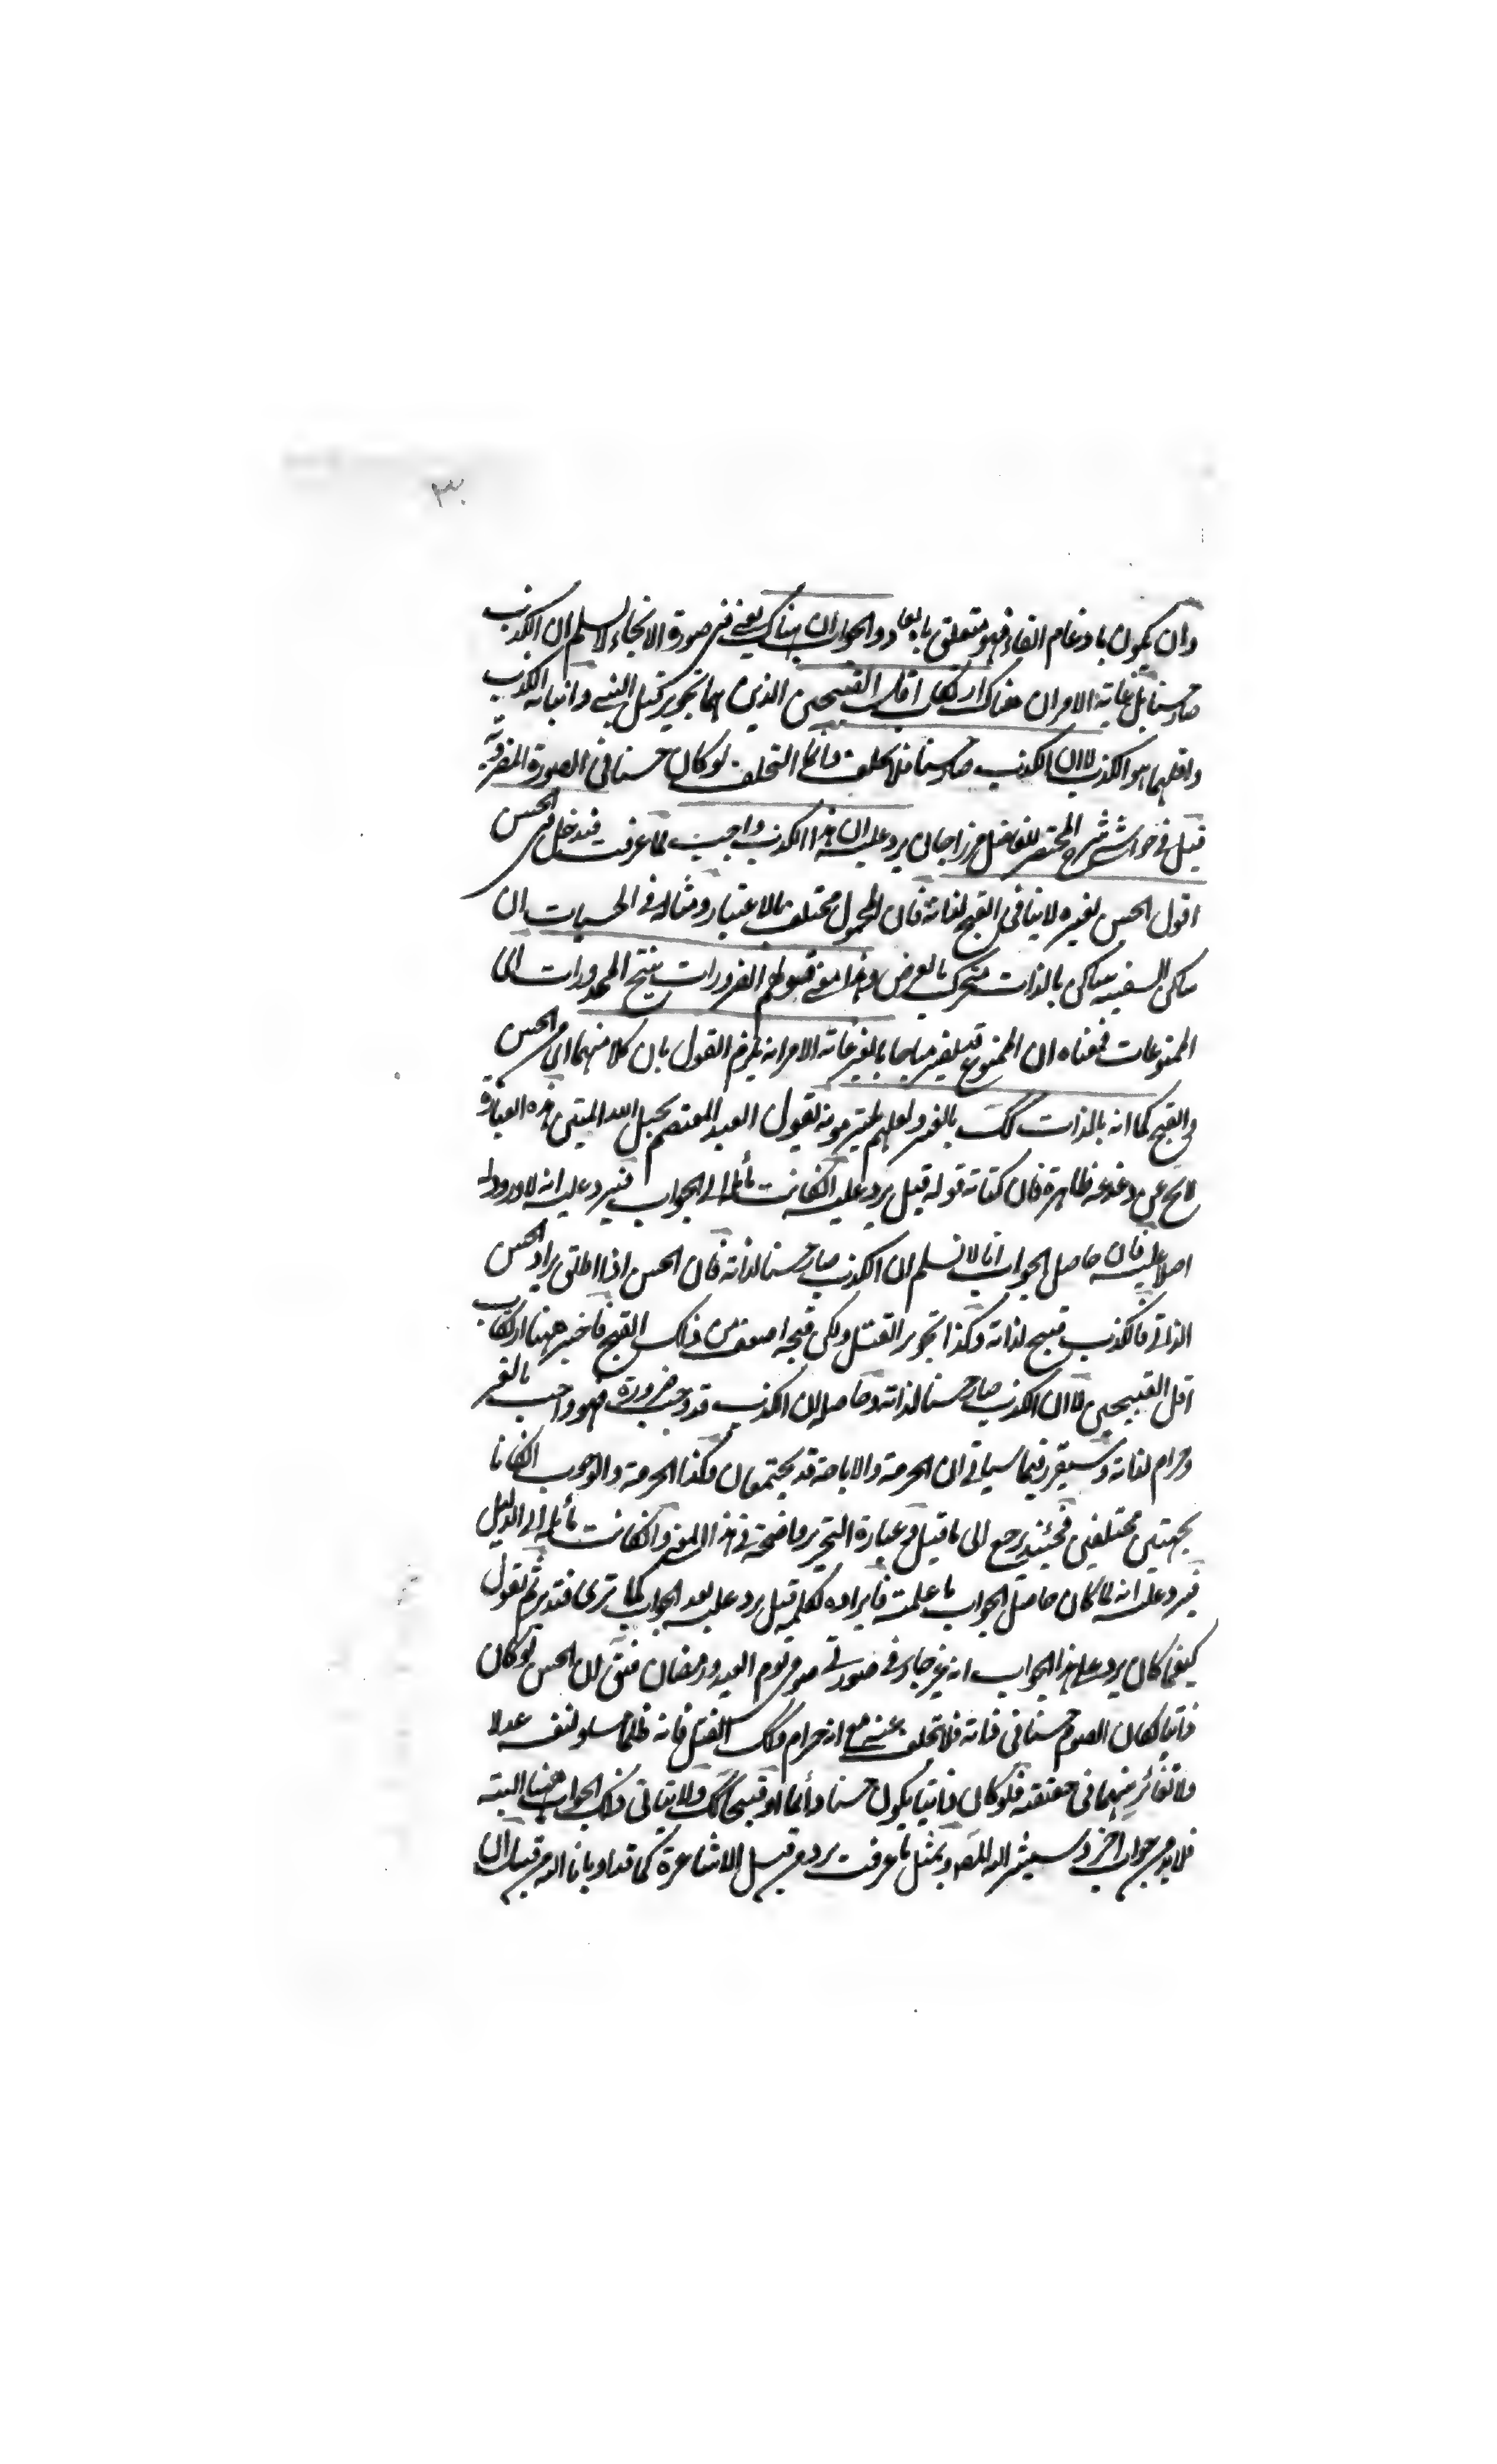 ٣٠
وان يكون بادغام الفاء فهو متعلق بالمفاد والجواب ان هناك يعني في صورة الانجاء لا نسلم ان الكذب
صار حسنا بل غاية الامر ان هناك ارتكاب اقل القبيحين الذين هما تجويز قتل النبي وانيابه الكذب
واقلهما هو الكذب لا ان الكذب صار حسنا فلا تخلف وانما التخلف لو كان حسنا في الصورة المفروضة
قيل في حواشي شرح المختصر للفاضل مرزاجان يرد عليه ان هذا الكذب واجب لما عرفت فيدخل في الحسن
اقول الحسن لغيره لا ينافي القبح لذاته فان المحمول مختلف بالاعتبار ومثاله في الحسيات ان
ساكن السفينة ساكن بالذات متحرك بالعرض وهذا معنى قولهم الضرورات تبيح المحذورات اي
الممنوعات فمعناه ان الممنوع قد يصير مباحا بالغير غاية الامر انه يلزم القول بان كلا منهما اي من الحسن
والقبح كما انه بالذات كك بالغير ولعلهم يلتزمونه نقول العبد المعتصم بحبل الله المتين هذه العبارة
لا تخ عن دغدغة ظاهرة فان كتابة قوله قيل يرد عليه ان كانت ناظرا الى الجواب فيرد عليه انه لا ورود له
اصلا عليه فان حاصل الجواب انا لا نسلم ان الكذب صار حسنا لذاته فان الحسن اذا اطلق يراد الحسن
الذاتي فالكذب قبيح لذاته وكذا تجويز القتل ولكن قبحه اضعف من ذلك القبح فاختير ههنا ارتكاب
اقل القبيحين لا ان الكذب صار حسنا لذاته وحاصله ان الكذب قد وجب ضرورة فهو واجب بالغير
وحرام لذاته وسيقرر فيما سياتي ان الحرمة والاباحة قد يجتمعان وكذا الحرمة والوجوب ان كانا
بجهتين مختلفين فحينئذ يرجع الى ما قيل وعبارة التحرير واضحة في هذا المعنى وان كانت ناظرا الى الدليل
فيرد عليه انه لما كان حاصل الجواب ما علمت فايراده لكلمة قيل يرد عليه بعد الجواب كما ترى فتدبر ثم نقول
كيفما كان يرد على هذا الجواب انه غير جار في صورتي صوم يوم العيد ورمضان فنق ان الحسن لو كان
ذاتيا لكان الصوم حسنا في ذاته فلا تخلف عنه مع انه حرام وكك القتل فانه ظلما سلو لنفسه عدلا
ولا تغائر بينهما في حقيقته فلو كان ذاتيا يكون حسنا دائما او قبيحا كك ولا يتاتى ذلك الجواب ههنا البتة
فلا بد من جواب اخر وسيشير اليه المص وبمثل ما عرفت يرد من قبل الاشاعرة كما قد اومانا اليه من قبل ان